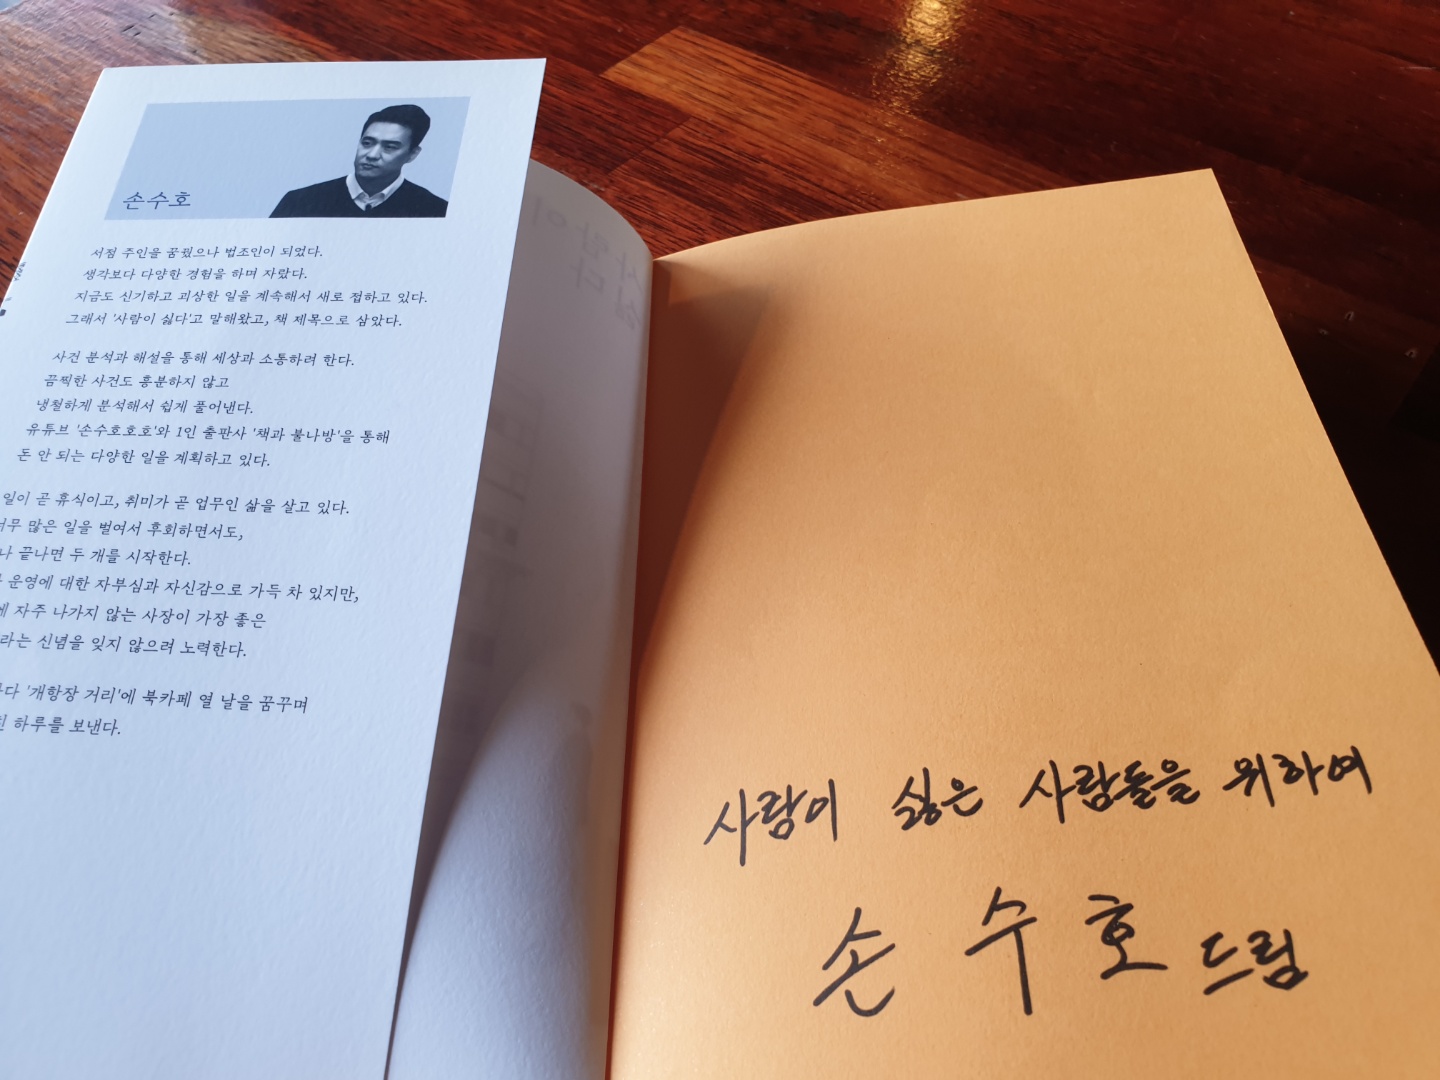 손수호
서점 주인을 꿈꿨으나 법조인이 되었다.
생각보다 다양한 경험을 하며 자랐다.
지금도 신기하고 괴상한 일을 계속해서 새로 접하고 있다.
그래서 '사람이 싫다'고 말해왔고, 책 제목으로 삼았다.
사건 분석과 해설을 통해 세상과 소통하려 한다.
끔찍한 사건도 흥분하지 않고
냉철하게 분석해서 쉽게 풀어낸다.
유튜브 '손수호호호'와 1인 출판사 '책과 불나방'을 통해
돈 안 되는 다양한 일을 계획하고 있다.
일이 곧 휴식이고, 취미가 곧 업무인 삶을 살고 있다.
많은 일을 벌여서 후회하면서도,
끝나면 두 개를 시작한다.
운영에 대한 자부심과 자신감으로 가득 차 있지만,
자주 나가지 않는 사장이 가장 좋은
라는 신념을 잊지 않으려 노력한다.
'개항장 거리'에 북카페 열 날을 꿈꾸며
하루를 보낸다.
사람이
싫다
사람이 싫은 사람들을 위하여
손수호 드림